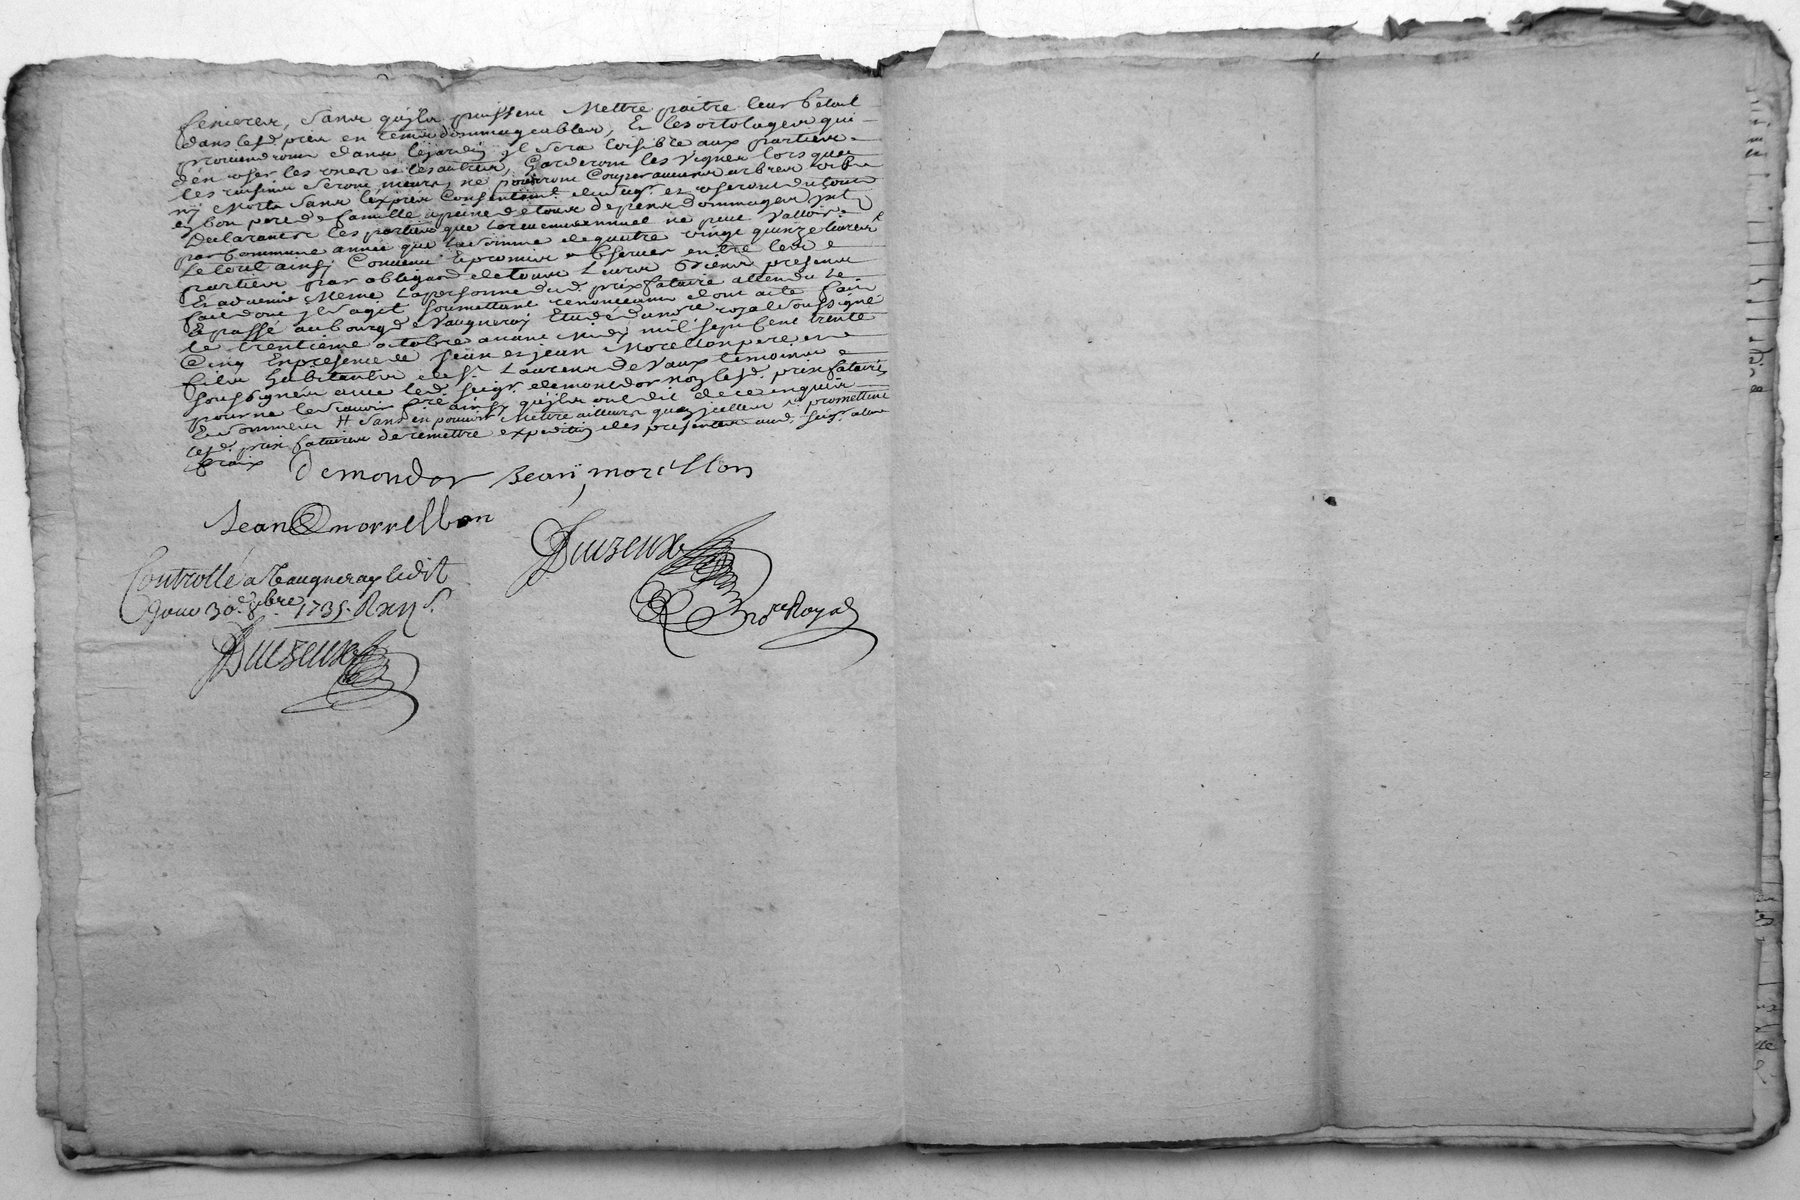 fenieres, sans quils puissent Mettre paitre leur betail
dans lesd. prés en tems dommageables, Et les ortolages qui
proviendront dans le jardin il sera loisible aux parties
d'en user les unes et les autres, Garderont les vignes lorsque
les raisins seront meurs, ne pourront Couper aucuns arbres vifs
ny Morts sans l'exprés Consentemt. dud. sgr. et useront du tout
en bon pere de famille a peine de tous depens dommages jnts.
Declarants les parties que le revenu annuel ne peut valloir
par Commune année que la somme de quatre vingt quinze livres
Le tout ainsy Convenu Et promis observer entre les
parties par obligaon. de tous Leurs Biens presents
Et advenir Meme la personne dud. prixfataire attendu le
fait dont il s'agit soumettant renonceant dont acte fait
Et passé au bourg de Vaugneray Etude du nore. royal soussigné
le trentieme octobre avant Midy mil sept Cent trente
Cinq En presence de Jean et jean Morellon pere et
fils habitants de St. Laurent de Vaux temoins
soussignés avec led. seigr. demondor non lesd. prixfataires
pour ne le sçavoir fre. ainsy quils ont dit de ce enquis
Et sommés # sans en pouvoir Mettre ailleurs qu'en jcelles promettent
lesd. prixfataires de remettre expedition des presentes aud. seigr. a leurs
fraix
Demondor Jean morellon
Jean morrellon
Duizeux
nore Royal
Controllé a Vaugneray ledit
Jour 30e. 8bre. 1735. R
Duizeux